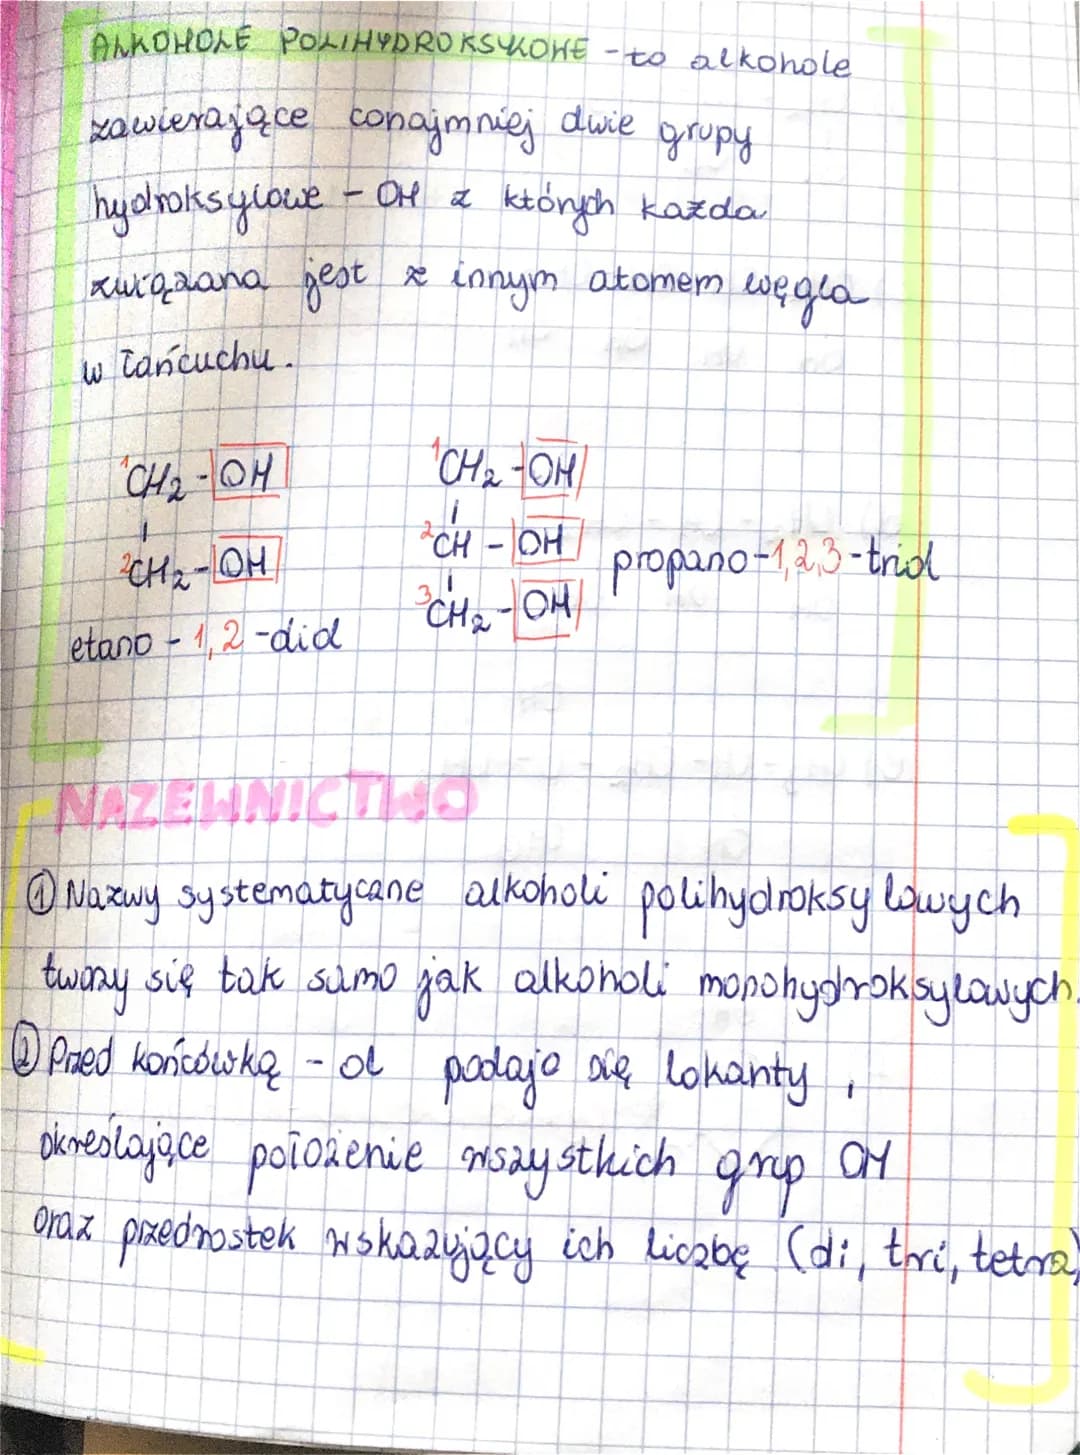 ALKOHOLE POLIHYDROKSYLOWE - to alkohole
zawierające conajmniej dwie grupy
hydroksylowe - OH z których każda
związana jest z innym atomem węgla
w łańcuchu.
¹CH₂ - OH
²CH₂ - OH
etano - 1,2 - diol
¹CH₂ - OH
²CH - OH
³CH₂ - OH
propano - 1,2,3 - triol
NAZEWNICTWO
① Nazwy systematyczne alkoholi polihydroksylowych
tworzy się tak samo jak alkoholi monohydroksylowych.
② Przed końcówką - ol podaje się lokanty,
określające położenie wszystkich grup OH
oraz przedrostek wskazujący ich liczbę (di, tri, tetra)